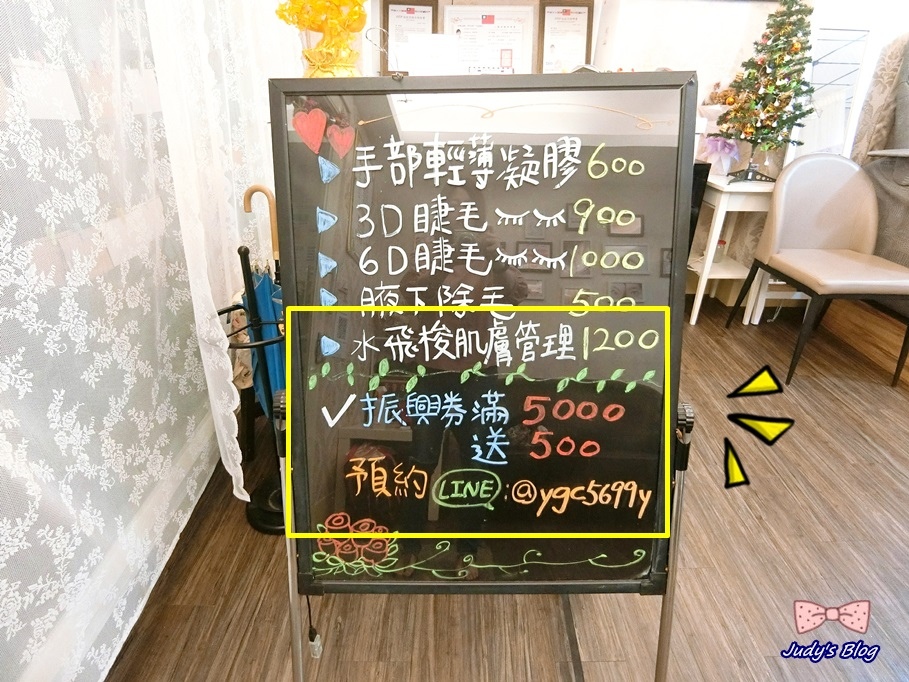 手部輕薄凝膠 600
3D睫毛 900
6D睫毛 1000
腋下除毛 500
水飛梭肌膚管理 1200
振興券滿 5000
送 500
預約 LINE:@ygc5699y
Judy's Blog